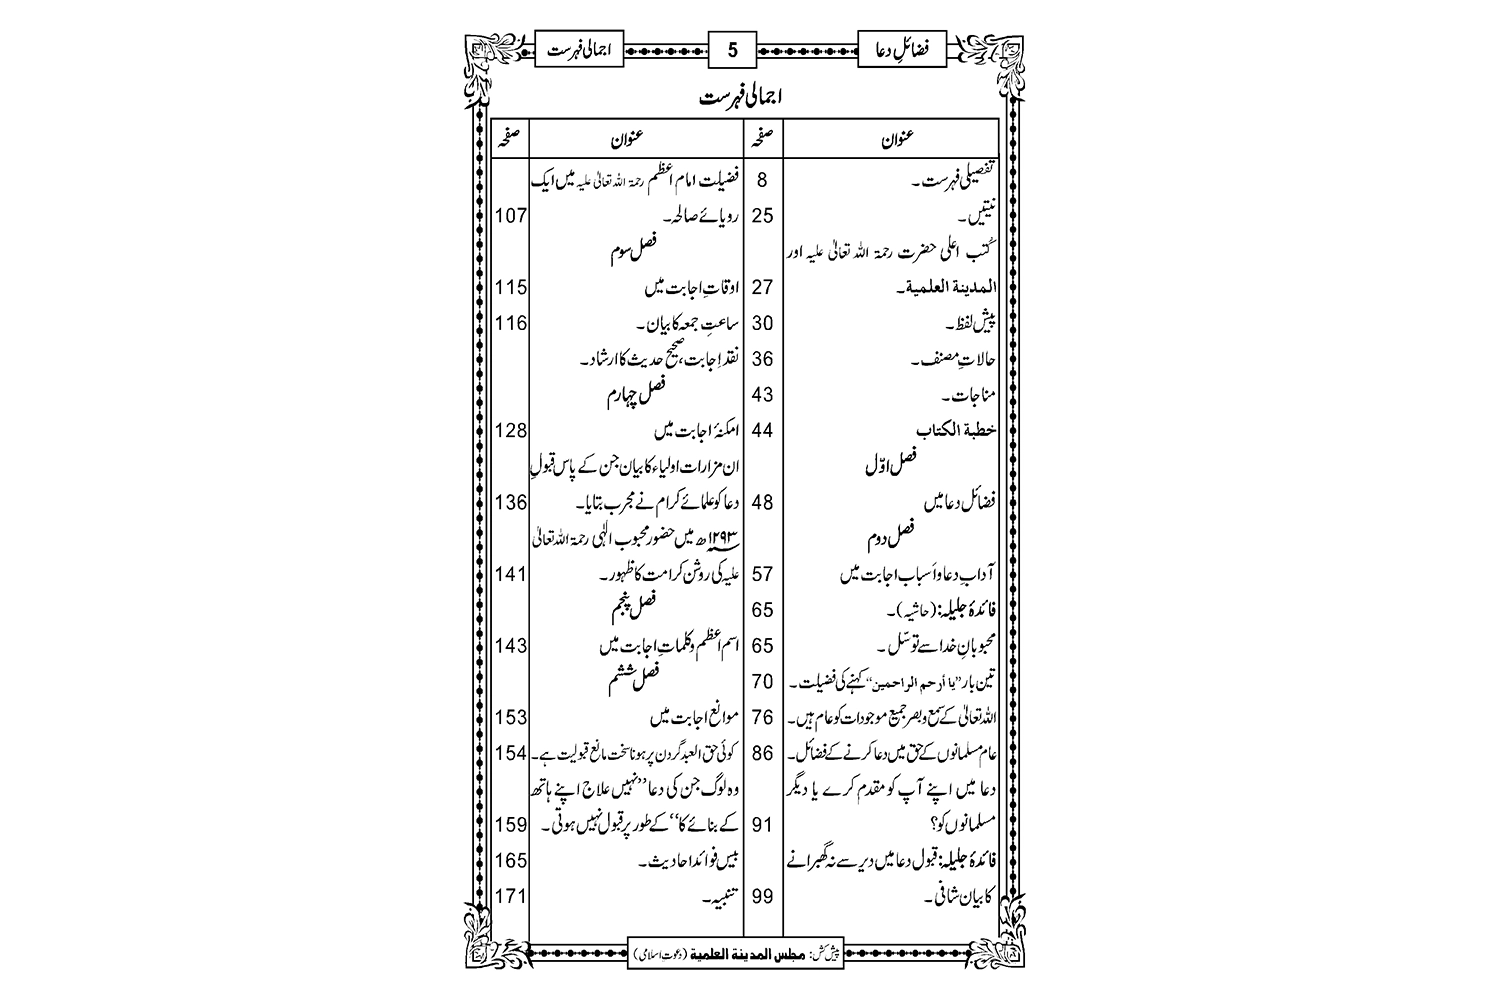 فضائلِ دعا 5 اجمالی فہرست
اجمالی فہرست
عنوان صفحہ
تفصیلی فہرست۔ 8
نیتیں۔ 25
کُتب اعلی حضرت رحمۃ اللہ تعالیٰ علیہ اور
المدینة العلمیة۔ 27
پیش لفظ۔ 30
حالاتِ مصنف۔ 36
مناجات۔ 43
خطبة الکتاب 44
فصل اوّل
فضائل دعا میں 48
فصل دوم
آدابِ دعا و اَسباب اجابت میں 57
فائدۂ جلیلہ: (حاشیہ)۔ 65
محبوبانِ خدا سے توسّل۔ 65
تین بار ’’یا أرحم الراحمین‘‘ کہنے کی فضیلت۔ 70
اللہ تعالیٰ کے سمع و بصر جمیع موجودات کو عام ہیں۔ 76
عام مسلمانوں کے حق میں دعا کرنے کے فضائل۔ 86
دعا میں اپنے آپ کو مقدم کرے یا دیگر
مسلمانوں کو؟ 91
فائدۂ جلیلہ: قبول دعا میں دیر سے نہ گھبرانے
کا بیان شافی۔ 99
عنوان صفحہ
فضیلت امام اعظم رحمۃ اللہ تعالیٰ علیہ میں ایک
رویائے صالحہ۔ 107
فصل سوم
اوقاتِ اجابت میں 115
ساعتِ جمعہ کا بیان۔ 116
نقد اِجابت، صحیح حدیث کا ارشاد۔
فصل چہارم
امکنۂ اجابت میں 128
ان مزارات اولیاء کا بیان جن کے پاس قبولِ
دعا کو علمائے کرام نے مجرب بتایا۔ 136
۱۲۹۳ھ میں حضور محبوب الٰہی رحمۃ اللہ تعالیٰ
علیہ کی روشن کرامت کا ظہور۔ 141
فصل پنجم
اسم اعظم و کلماتِ اجابت میں 143
فصل ششم
موانع اجابت میں 153
کوئی حق العبد گردن پر ہونا سخت مانع قبولیت ہے۔ 154
وہ لوگ جن کی دعا ’’نہیں علاج اپنے ہاتھ
کے بنائے کا‘‘ کے طور پر قبول نہیں ہوتی۔ 159
بیس فوائد احادیث۔ 165
تنبیہ۔ 171
پیش کش: مجلس المدینة العلمیة (دعوتِ اسلامی)